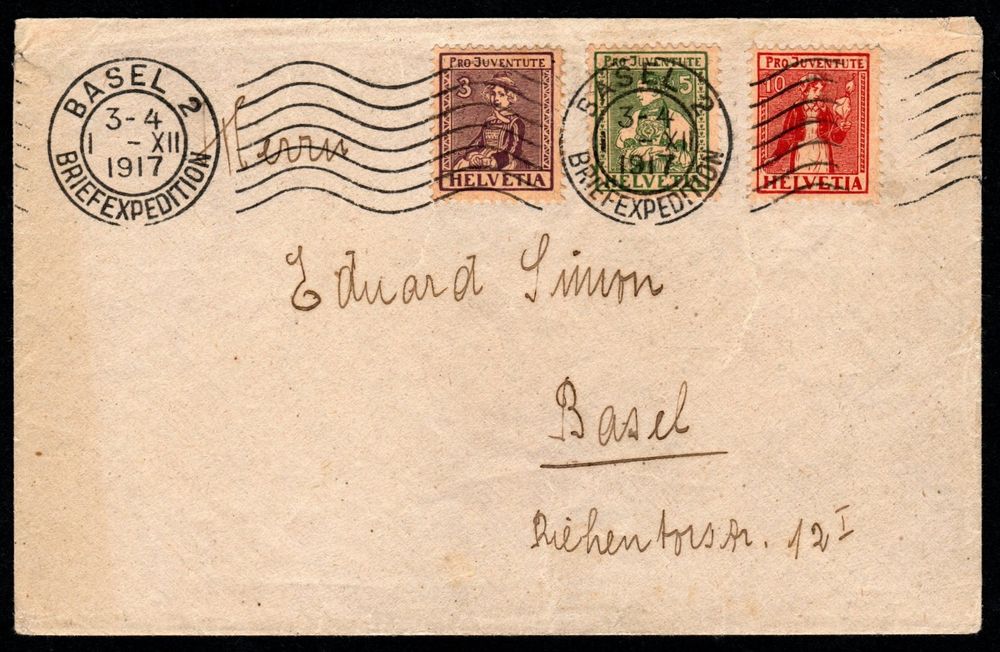 BASEL 2
3-4
1 - XII
1917
BRIEFEXPEDITION
PRO JUVENTUTE
3
HELVETIA
PRO JUVENTUTE
5
HELVETIA
BASEL 2
3-4
1 - XII
1917
BRIEFEXPEDITION
PRO JUVENTUTE
10
HELVETIA
Herrn
Eduard Simon
Basel
Riehentorstr. 12 I